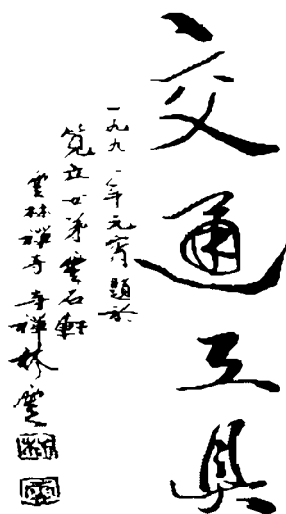 交通工具
一九九一年元宵題於
立女弟雲石軒
雲林禪寺寺禪林雲